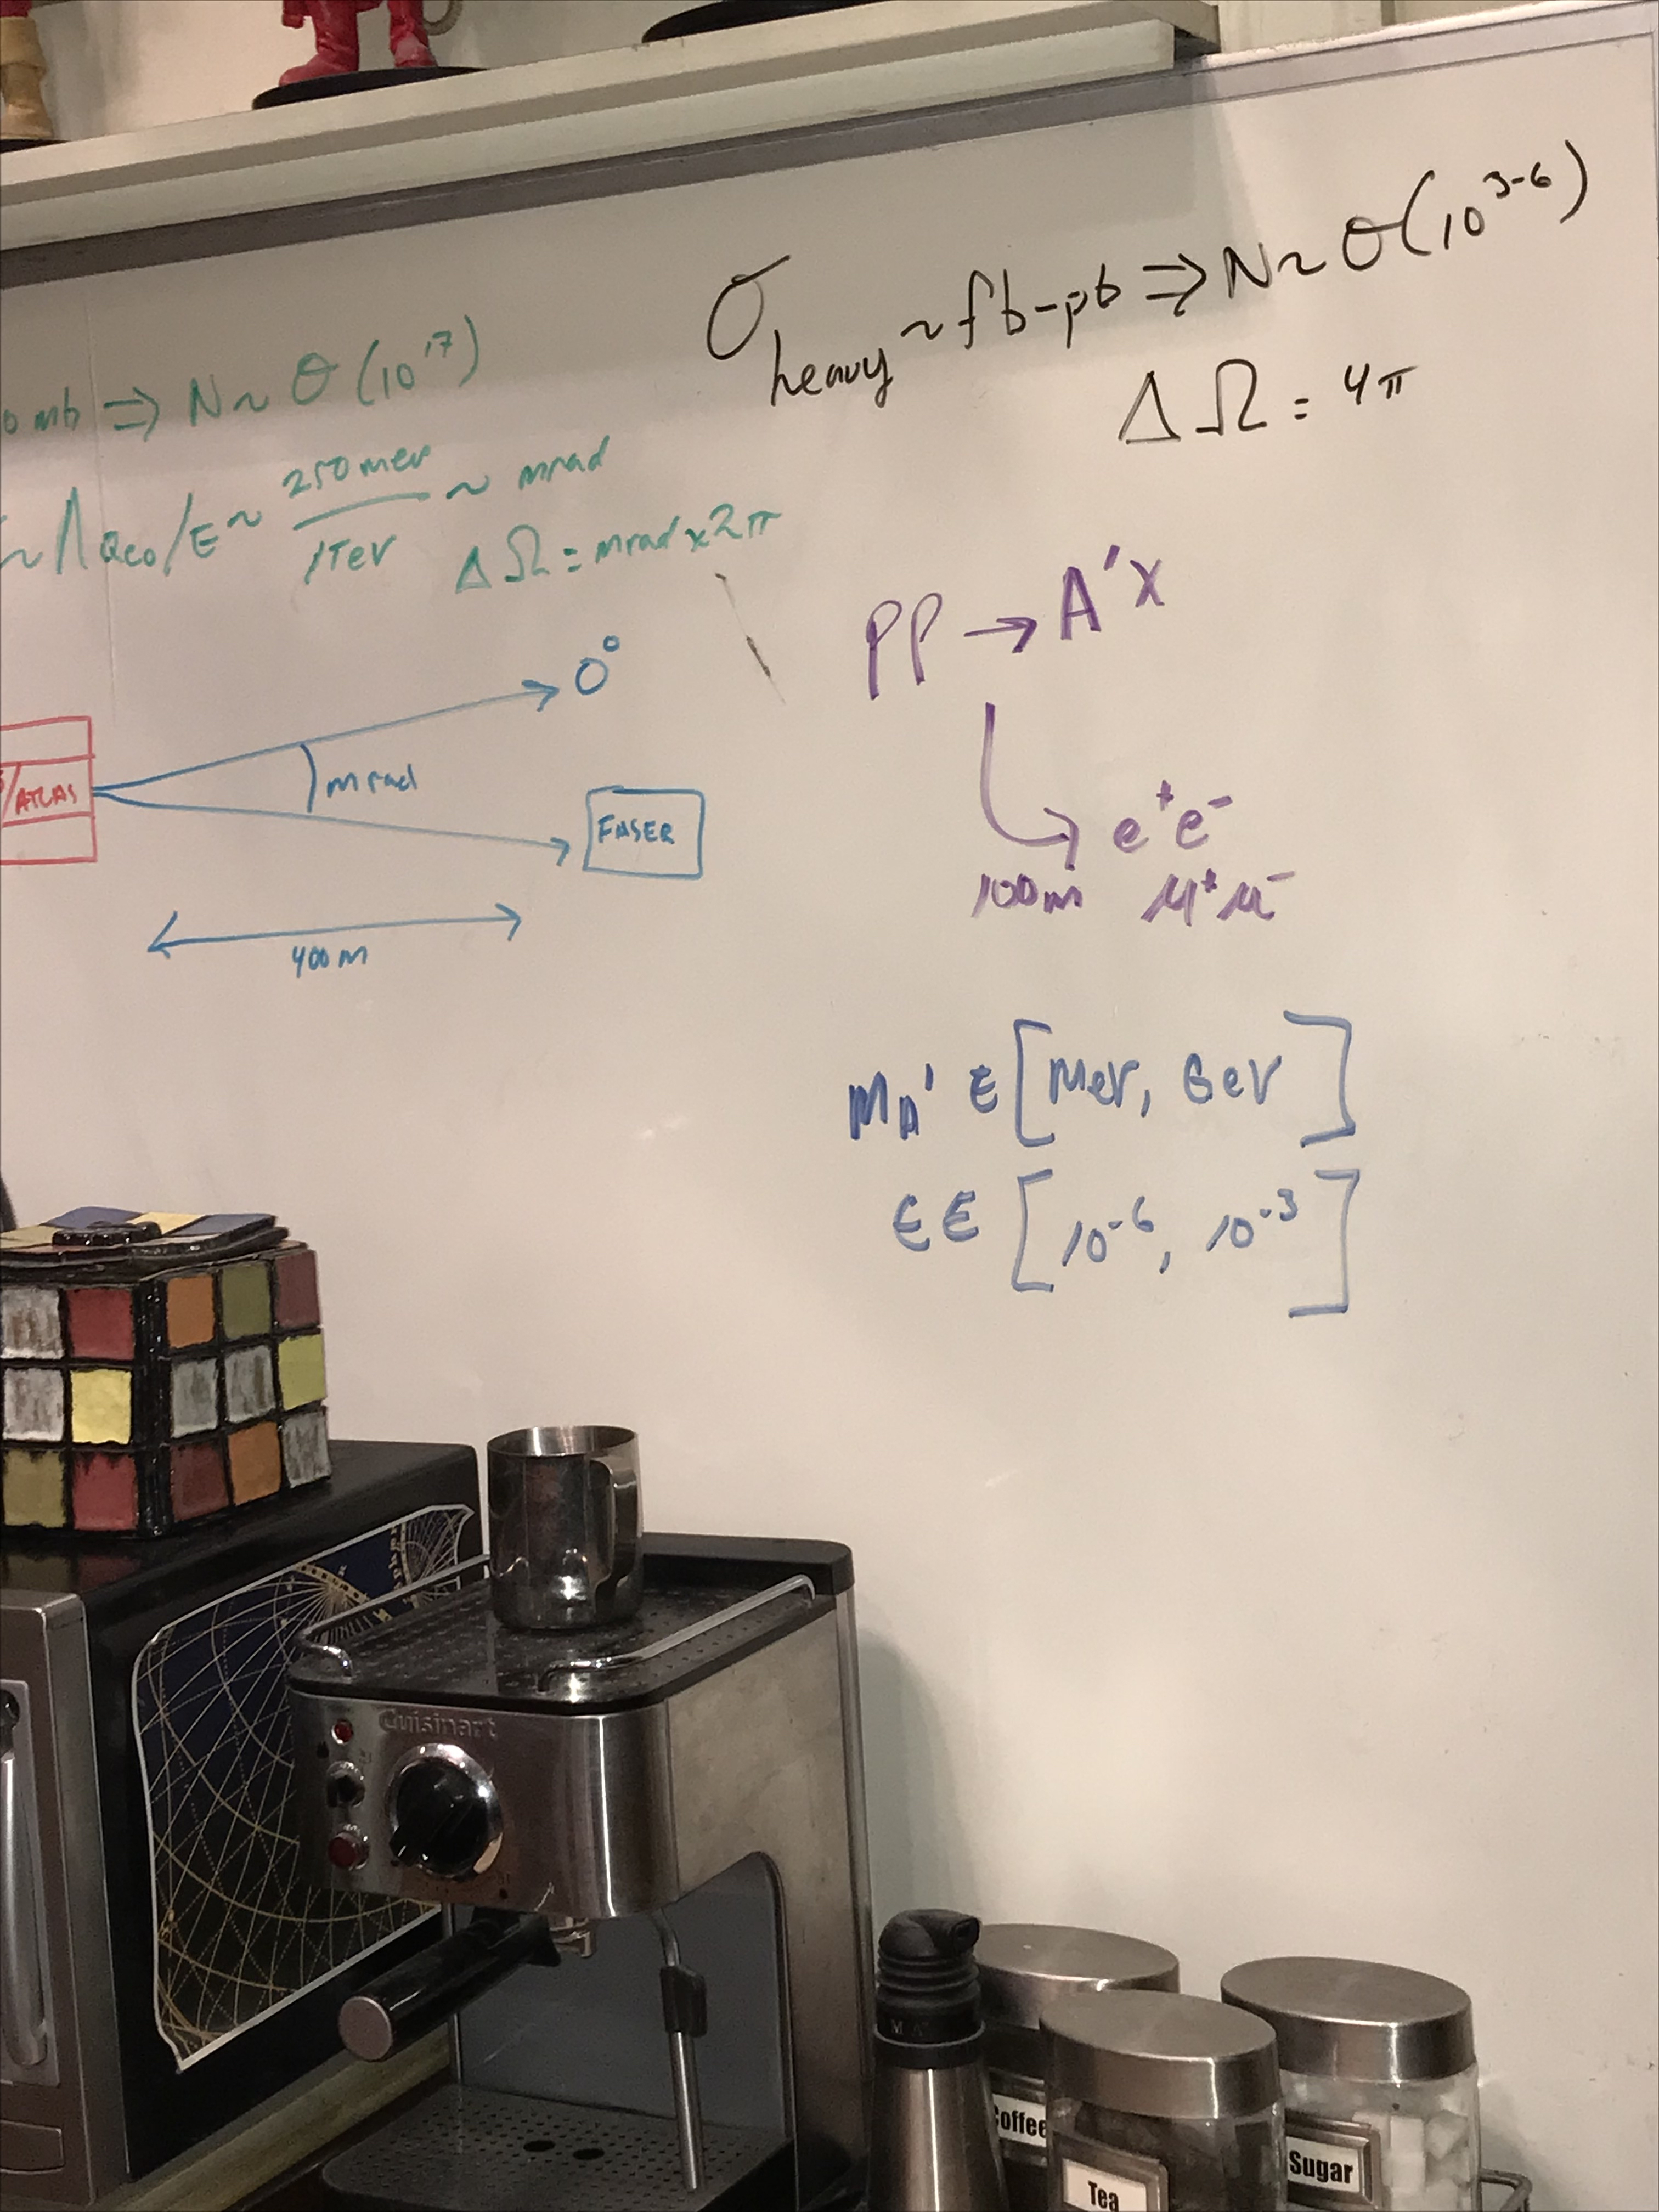 σ_heavy ~ fb-pb ⇒ N ~ O(10^3-6)
ΔΩ = 4π
0 mb ⇒ N ~ O(10^17)
~ Λ_QCD/E ~ 250 MeV / 1 TeV ~ mrad
ΔΩ = mrad x 2π
0°
mrad
/ATLAS
FASER
400 m
PP → A'X
e+e-
100m μ+μ-
m_A' ∈ [MeV, GeV]
ϵ ∈ [10^-6, 10^-3]
Cuisinart
Coffee
Tea
Sugar